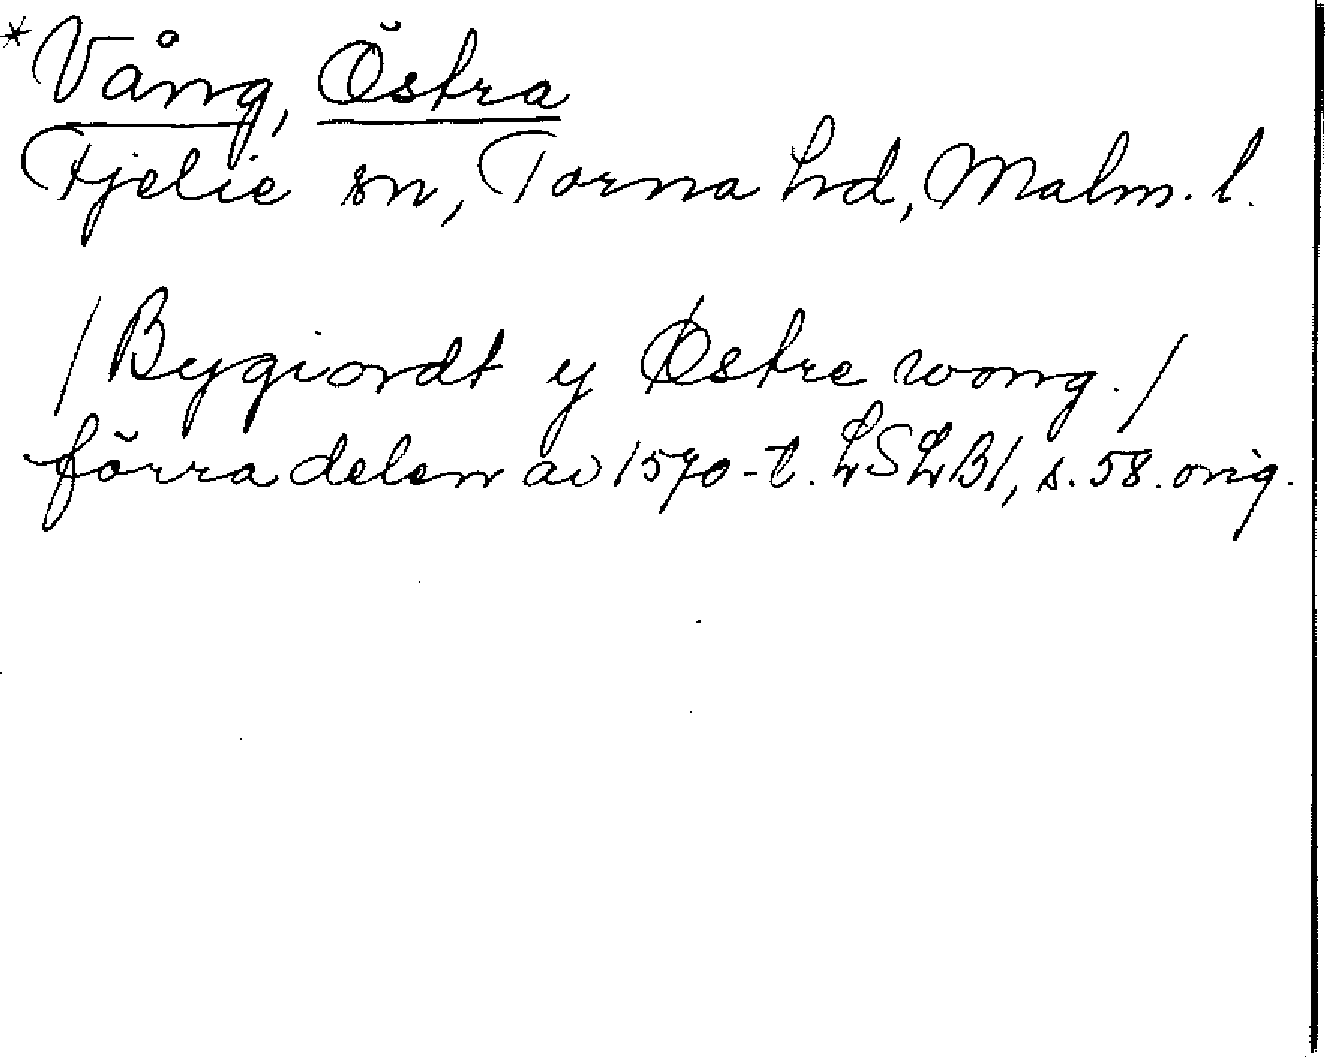 *Vång, Östra
Fjelie sn, Torna hd, Malm. l.
/Bygiordt y Østre wong./
förra delen av 1570-t. LSLB1, s. 58. orig.